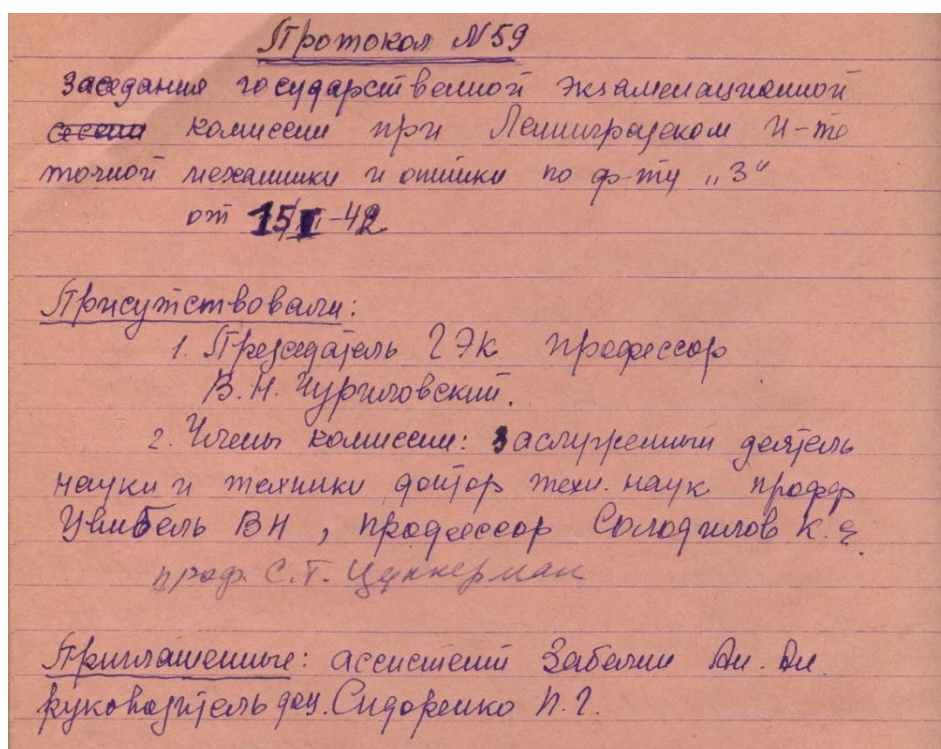 Протокол N59
заседания государственной экзаменационной
комиссии при Ленинградском И-те
точной механики и оптики по ф-ту „З“
от 15/I-42
Присутствовали:
1. Председатель ГЭК профессор
В.Н. Чуриловский.
2. Члены комиссии: Заслуженный деятель
науки и техники доктор техн. наук проф
ВН, профессор Солодилов К.Е.
проф. С.Т. Цуккерман
Приглашенные: ассистент Забелин Ан. Ан.
руководитель доц. Сидоренко Н.Г.